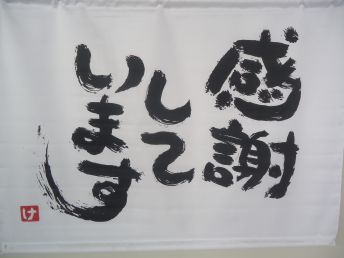 感謝
して
います
け